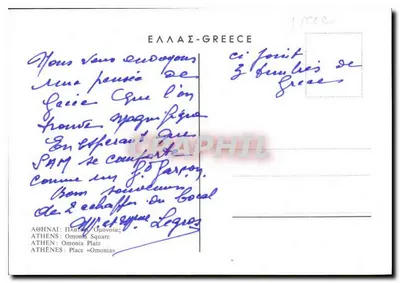 ΕΛΛΑΣ-GREECE
Nous vous envoyons
une pensée de
Grèce que l'on
trouve magnifique
En espérant que
SAM se comporte
comme un Gd Garçon.
Bon souvenir
de 2 échappés du bocal
Mr et Mme Legros
ci joint
3 timbres de
Grèce
ΑΘΗΝΑΙ: Πλατεῖα Ὁμονοίας
ATHENS: Omonia Square
ATHEN: Omonia Platz
ATHÈNES: Place «Omonia»